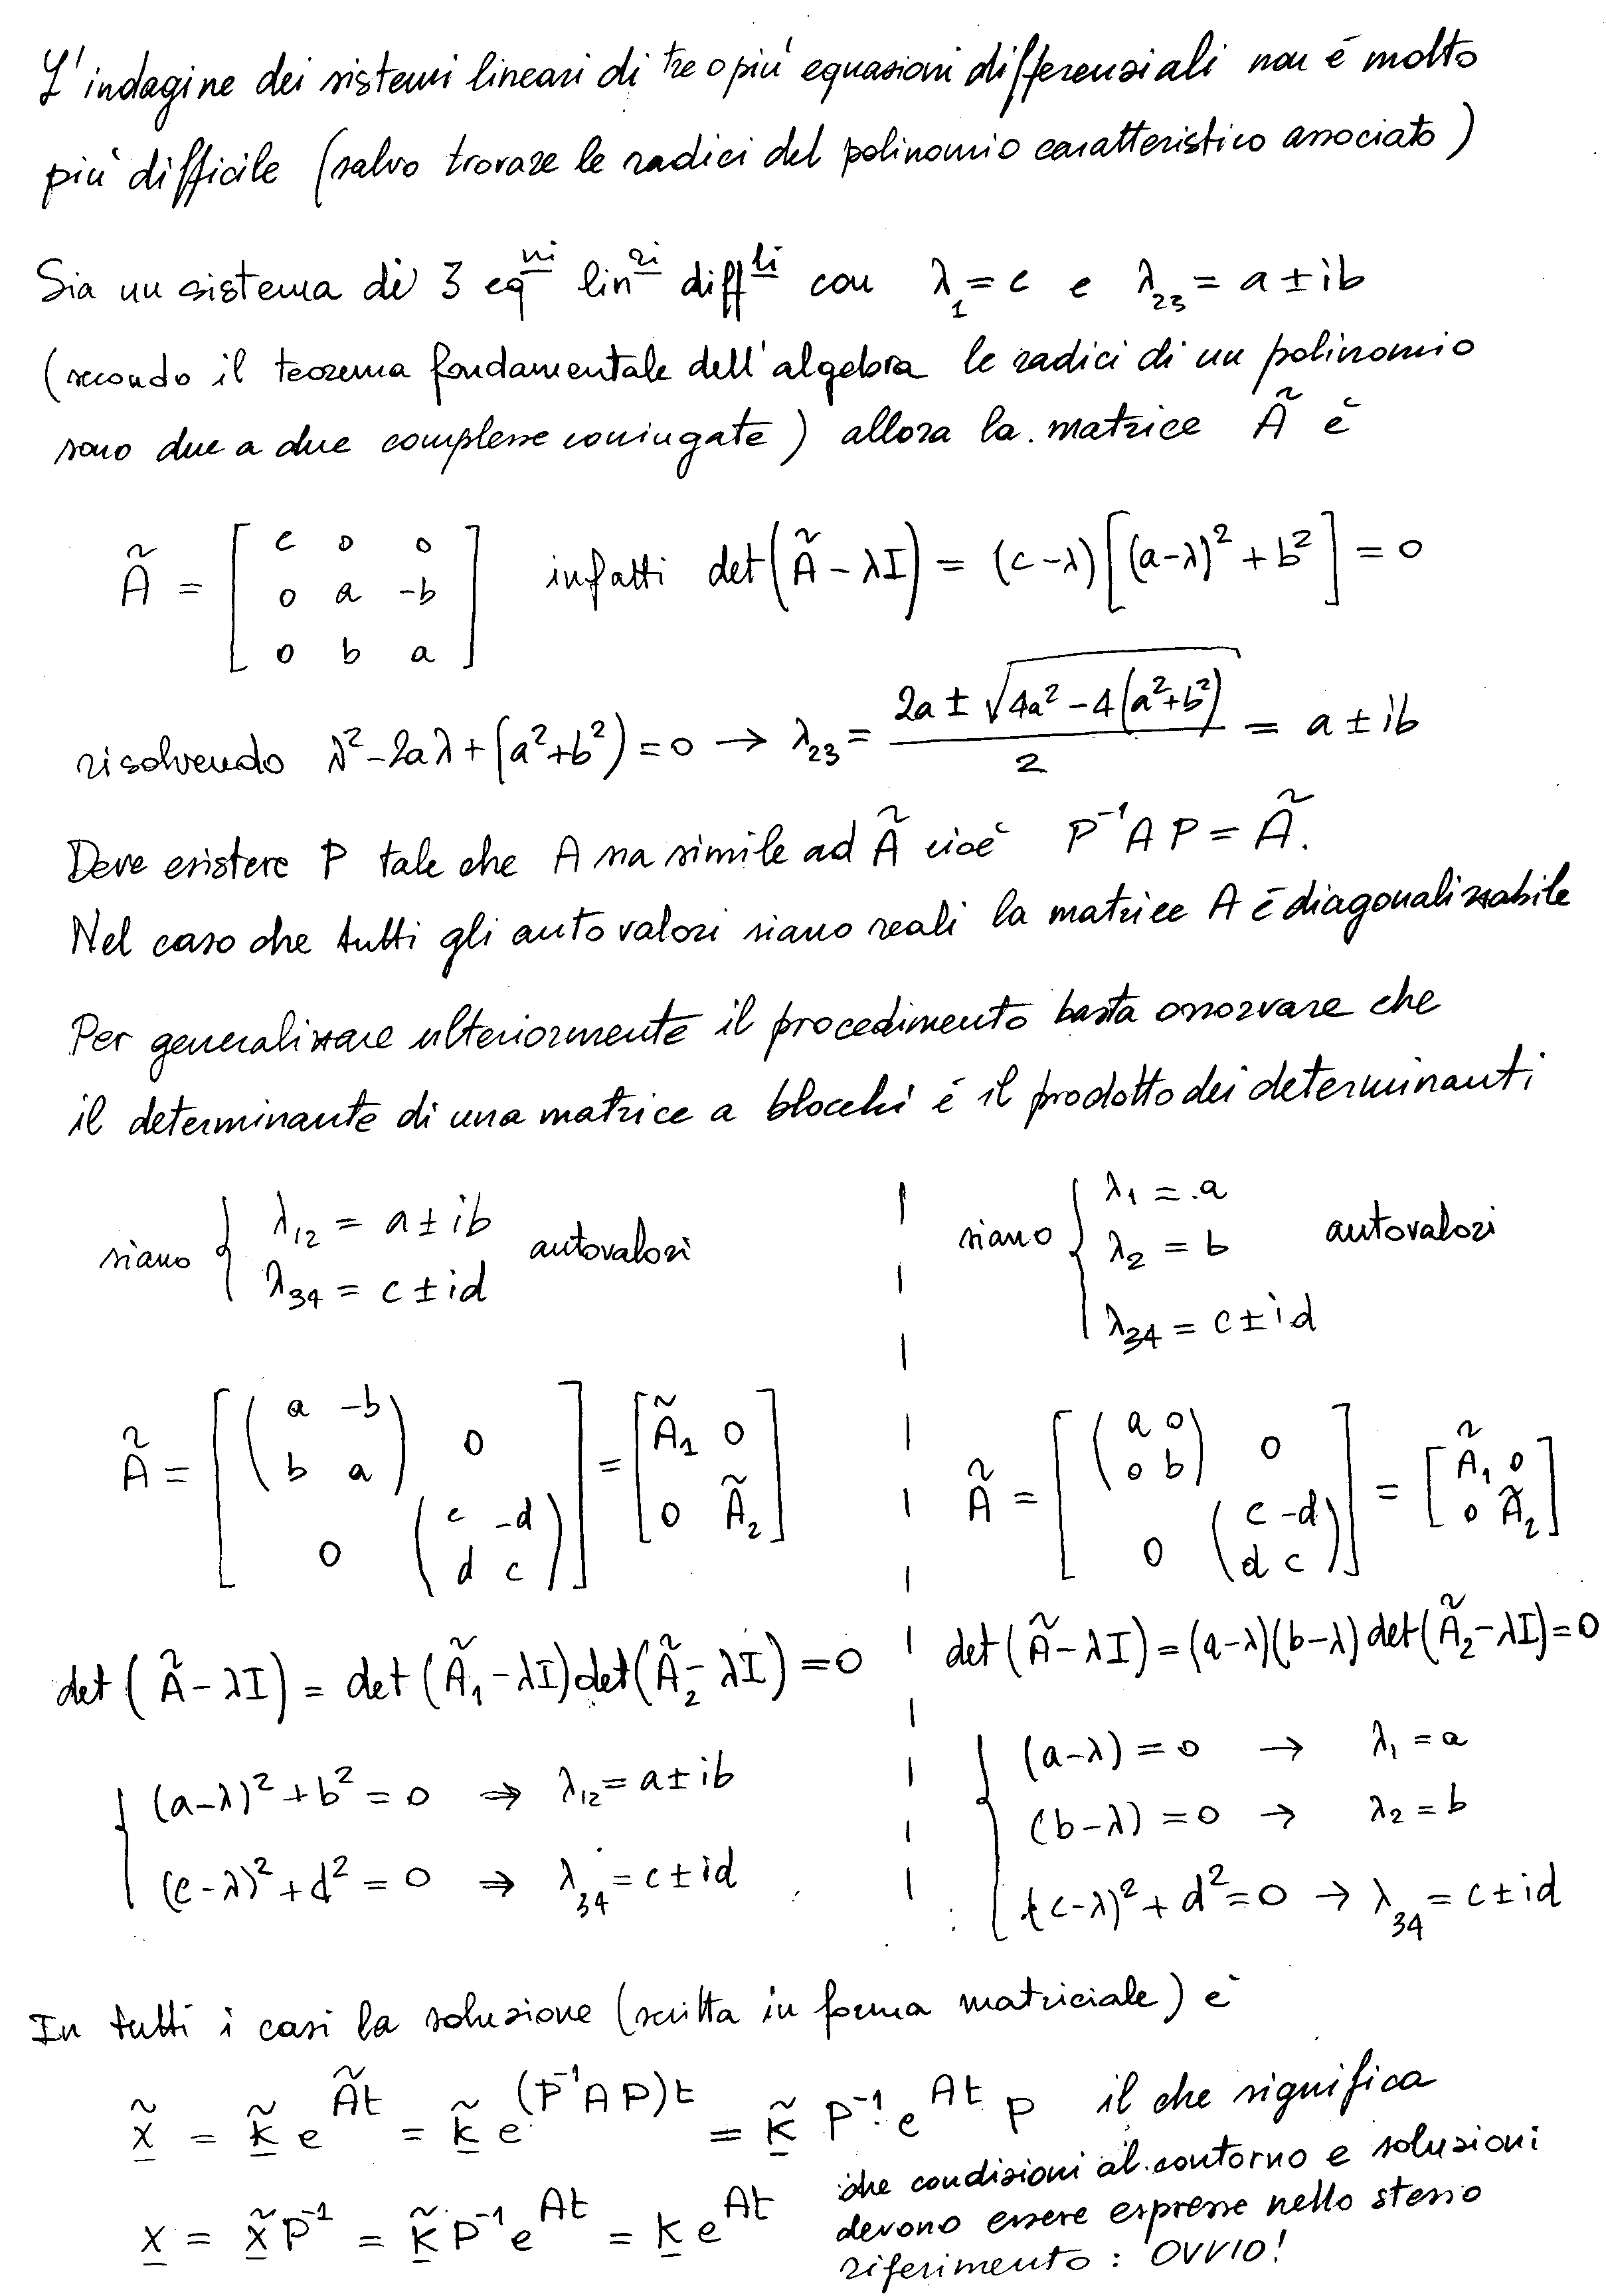 L'indagine dei sistemi lineari di tre o più equazioni differenziali non è molto
più difficile (salvo trovare le radici del polinomio caratteristico associato)
Sia un sistema di 3 eq^ni lin^ri diff^li con λ₁ = c e λ₂₃ = a ± ib
(secondo il teorema fondamentale dell'algebra le radici di un polinomio
sono due a due complesse coniugate) allora la matrice Ã è
Ã = [ c 0 0 ; 0 a -b ; 0 b a ] infatti det(Ã - λI) = (c-λ)[(a-λ)² + b²] = 0
risolvendo λ² - 2aλ + (a²+b²) = 0 → λ₂₃ = (2a ± √(4a² - 4(a²+b²)))/2 = a ± ib
Deve esistere P tale che A sia simile ad Ã cioè P⁻¹AP = Ã.
Nel caso che tutti gli autovalori siano reali la matrice A è diagonalizzabile
Per generalizzare ulteriormente il procedimento basta osservare che
il determinante di una matrice a blocchi è il prodotto dei determinanti
siano { λ₁₂ = a ± ib
λ₃₄ = c ± id autovalori
Ã = [ (a -b ; b a) 0 ; 0 (c -d ; d c) ] = [ Ã₁ 0 ; 0 Ã₂ ]
det(Ã - λI) = det(Ã₁ - λI) det(Ã₂ - λI) = 0
{ (a-λ)² + b² = 0 ⇒ λ₁₂ = a ± ib
(c-λ)² + d² = 0 ⇒ λ₃₄ = c ± id
siano { λ₁ = a
λ₂ = b autovalori
λ₃₄ = c ± id
Ã = [ (a 0 ; 0 b) 0 ; 0 (c -d ; d c) ] = [ Ã₁ 0 ; 0 Ã₂ ]
det(Ã - λI) = (a-λ)(b-λ) det(Ã₂ - λI) = 0
{ (a-λ) = 0 → λ₁ = a
(b-λ) = 0 → λ₂ = b
(c-λ)² + d² = 0 → λ₃₄ = c ± id
In tutti i casi la soluzione (scritta in forma matriciale) è
x̃ = k̃ e^{Ãt} = k̃ e^{(P⁻¹AP)t} = k̃ P⁻¹ e^{At} P il che significa
che condizioni al contorno e soluzioni
devono essere espresse nello stesso
riferimento : OVVIO!
x = x̃ P⁻¹ = k̃ P⁻¹ e^{At} = k e^{At}